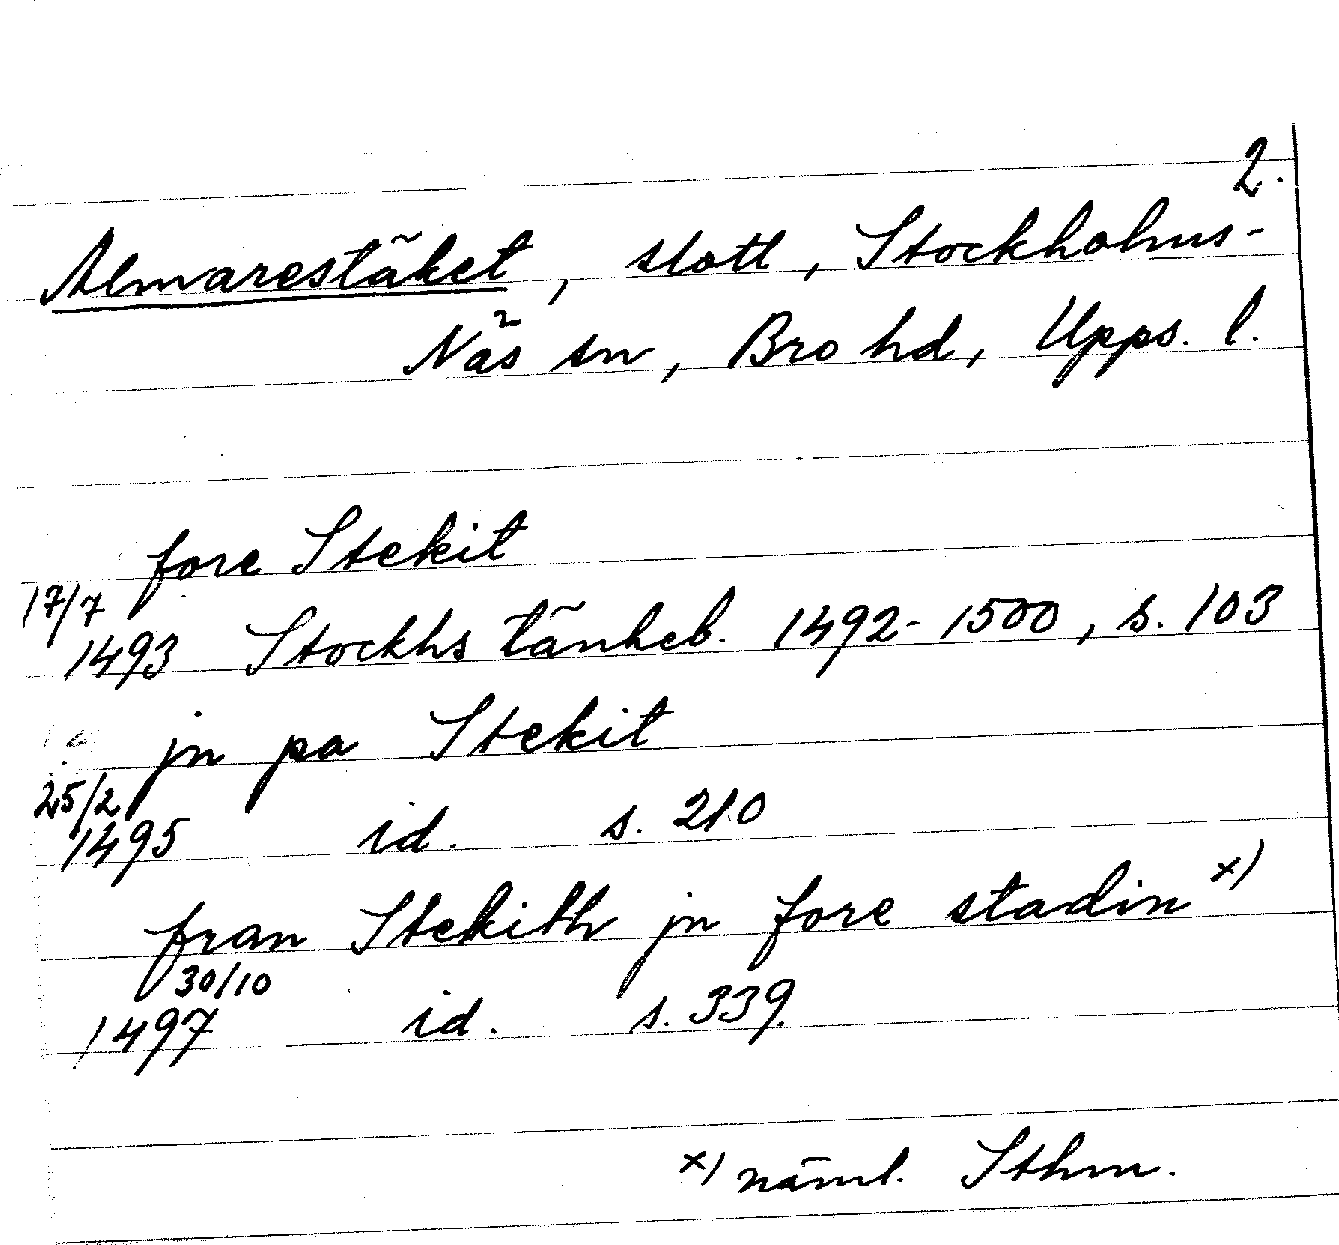 2.
Almarestäket, slott, Stockholms-
Näs sn, Bro hd, Upps. l.
fore Stekit
17/7
1493 Stockhs tänkeb. 1492-1500, s. 103
jn pa Stekit
25/2
1495 id. s. 210
fran Stekith jn fore stadin x)
30/10
1497 id. s. 339.
x) näml. Sthm.